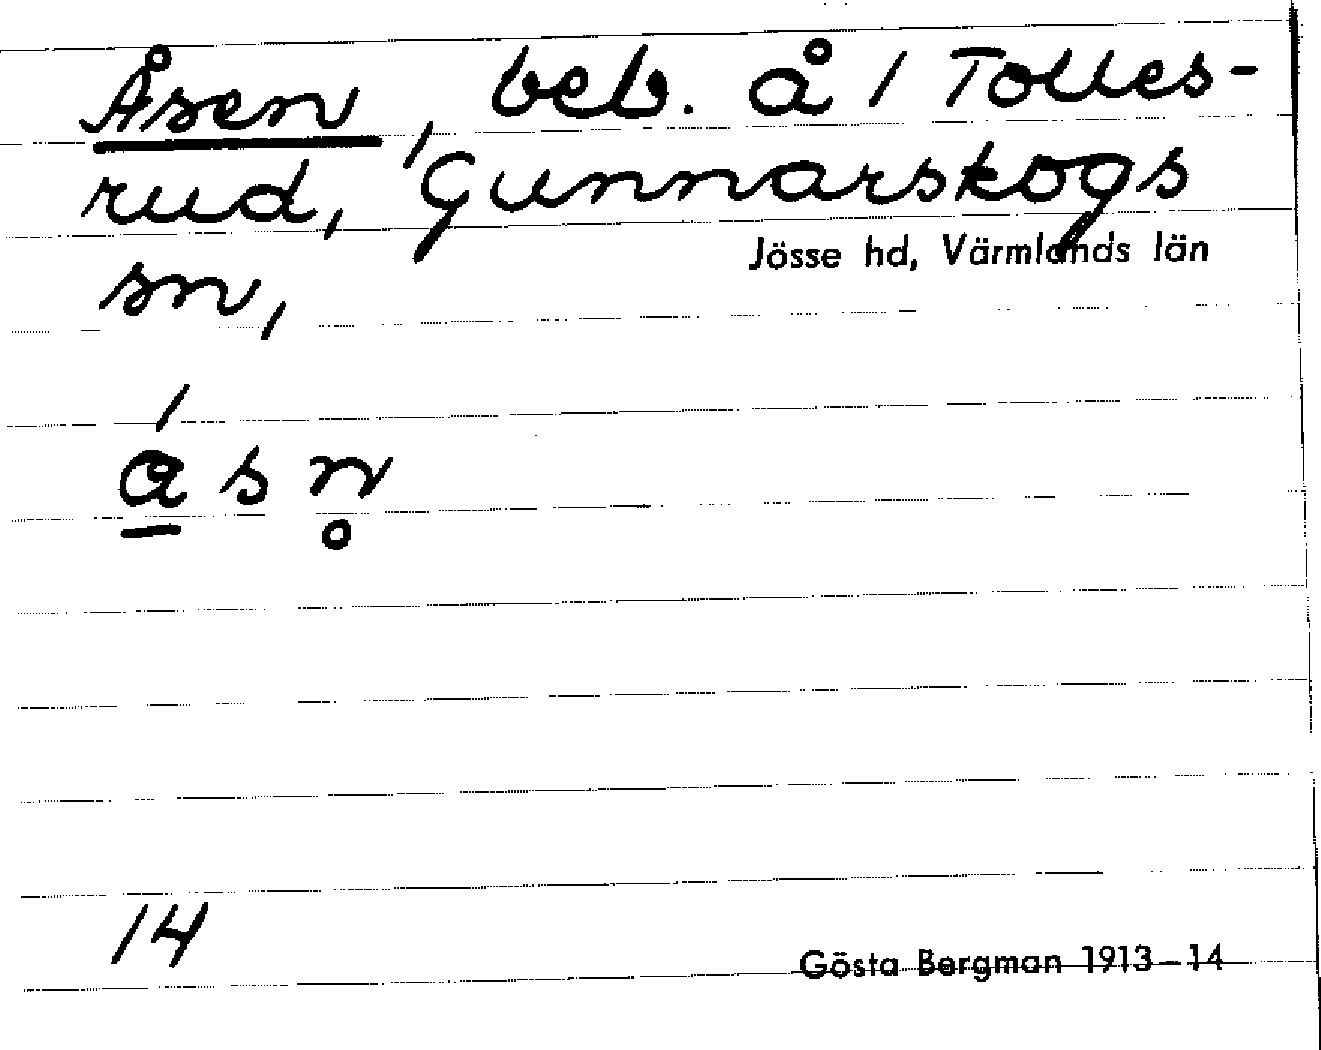 Åsen, beb. å 1 Tolles-
rud, Gunnarskogs
Jösse hd, Värmlands län
sn,
ˊ
a s n̥
14
Gösta Bergman 1913–14